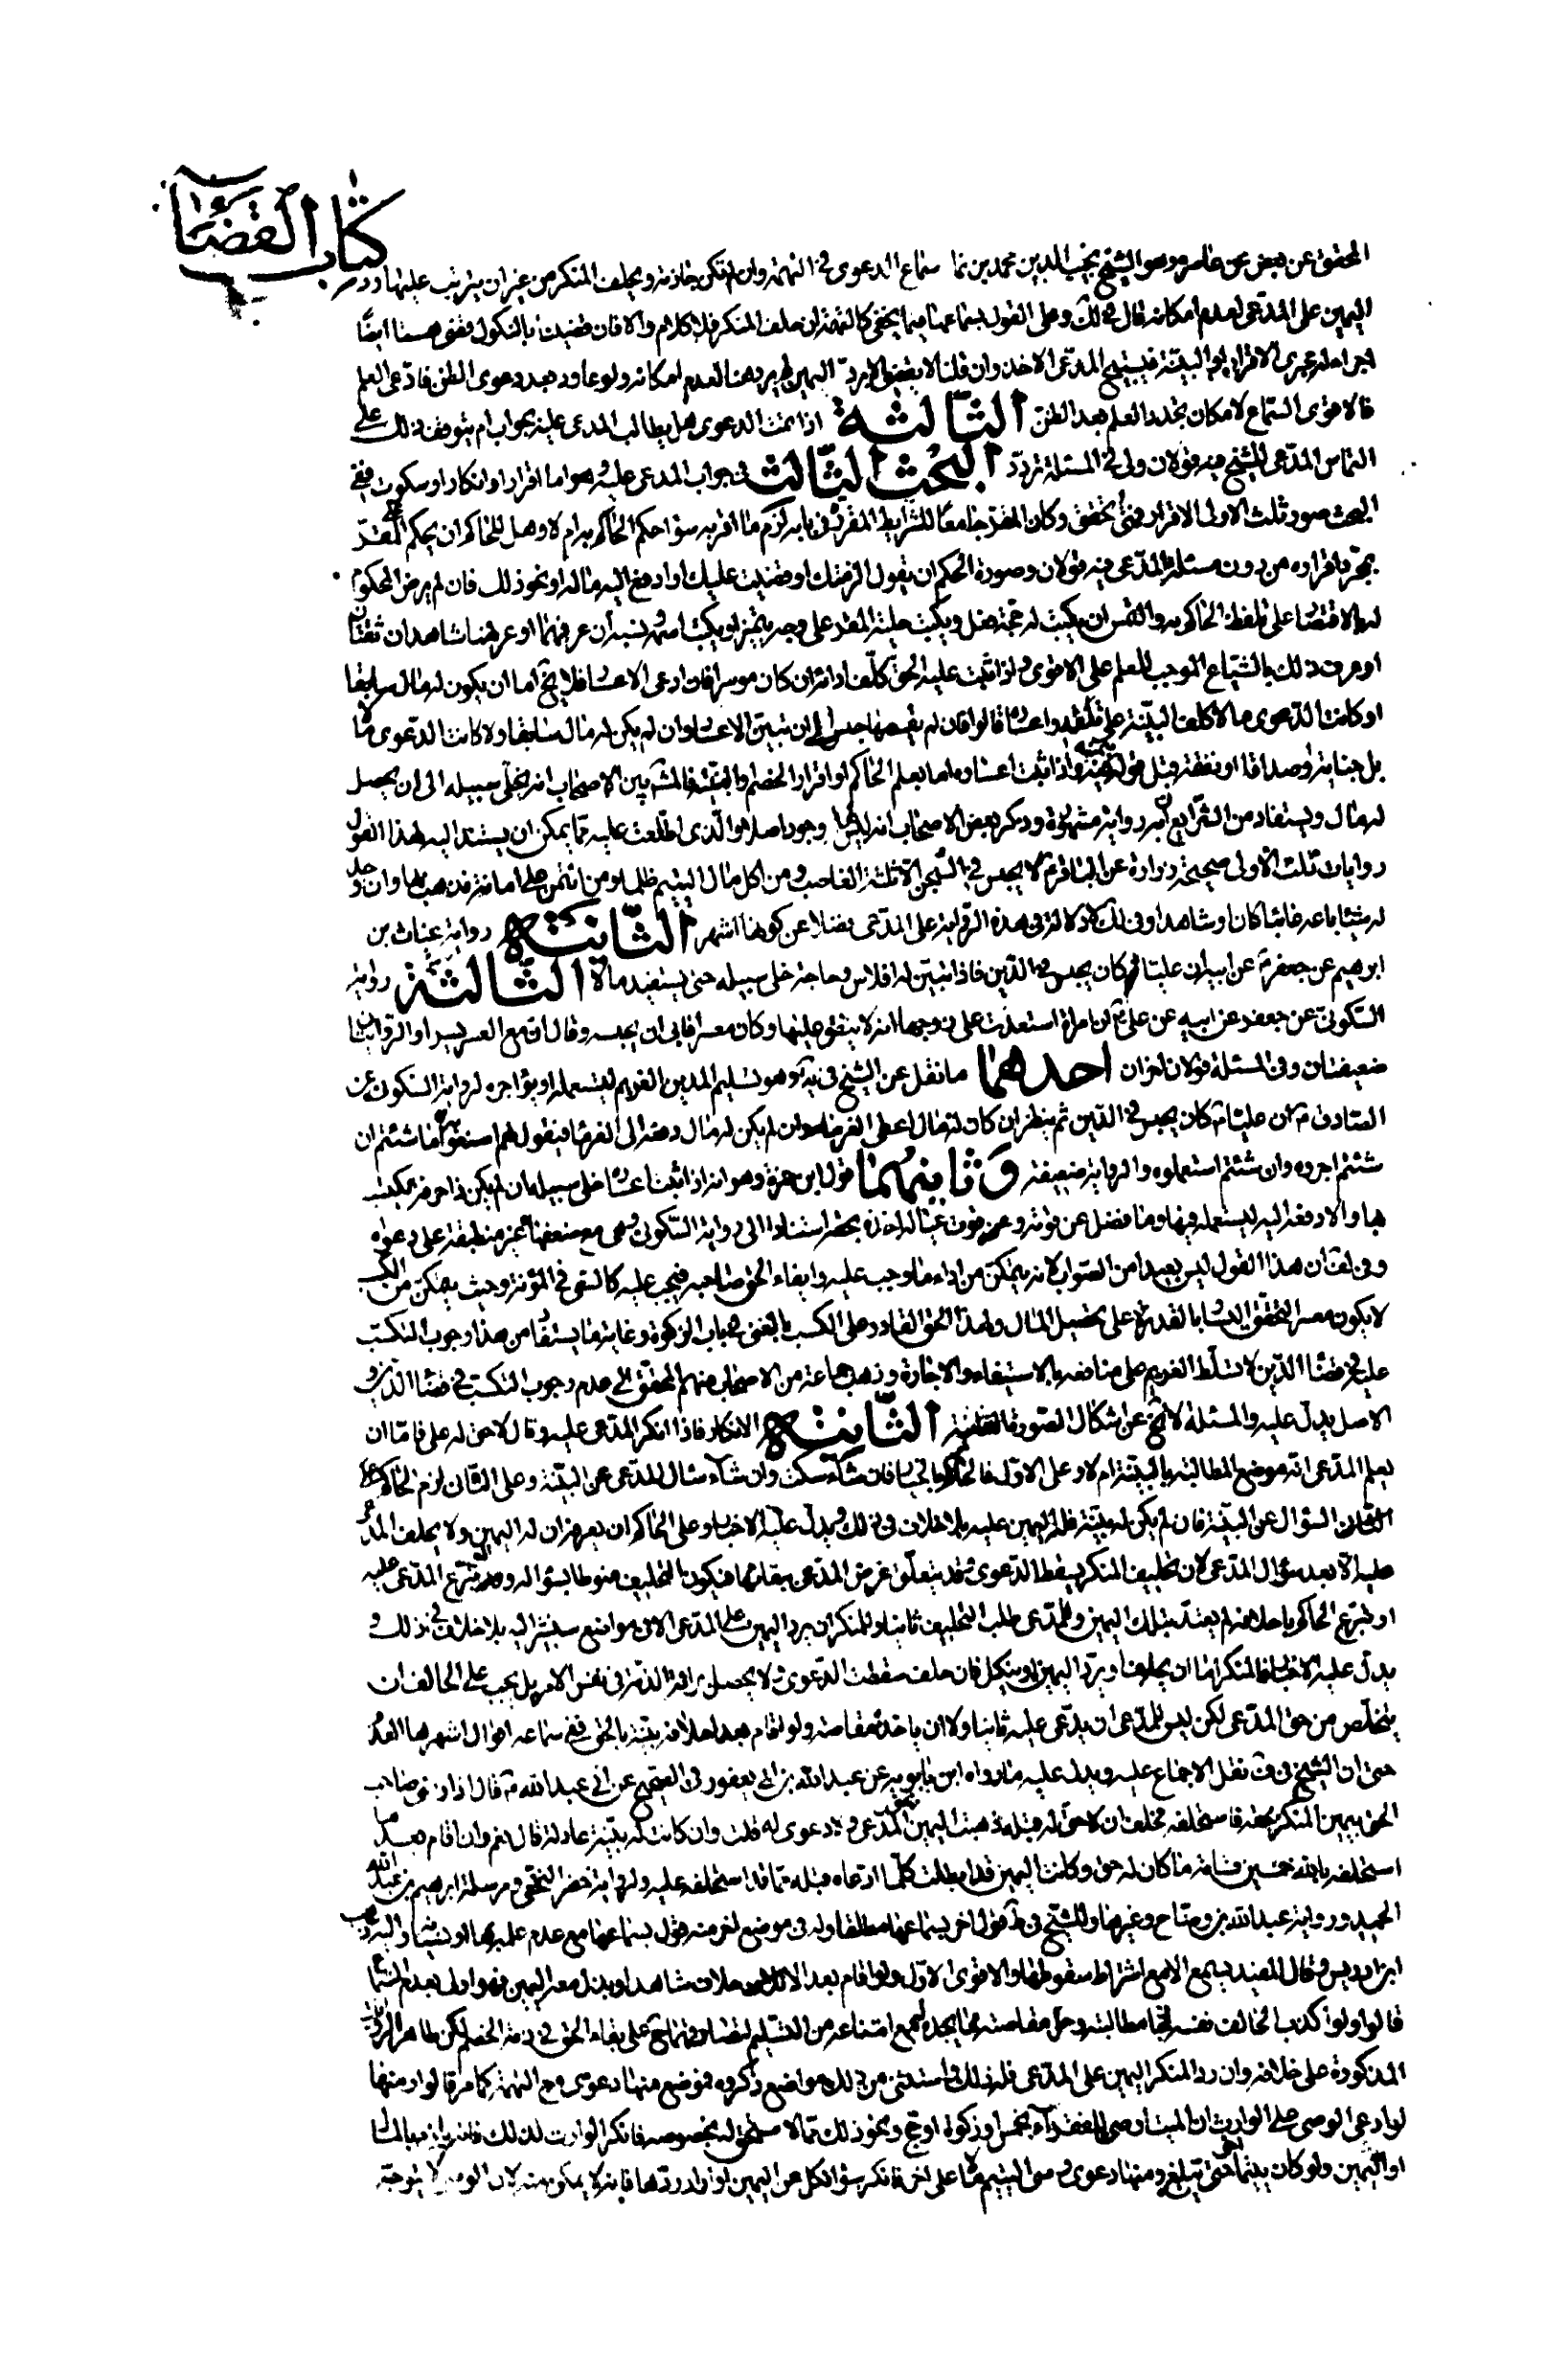 كتاب القضاء
المحقق عن بعض من عاصره وهو الشيخ نجيب الدين محمد بن نما سماع الدعوى في التهمة وان لم تكن جازمة ويحلف المنكر من غير ان يترتب عليها رد
اليمين على المدعى لعدم امكانه قال في لك وعلى القول بسماعها فيما يخفى كالتهمة ان حلف المنكر فلا كلام والا فان قضينا بالنكول قضى هنا ايضا
اجراء له مجرى الاقرار او البينة فيستبيح المدعى الاخذ وان قلنا لا يقضى الا برد اليمين لم يرد هنا لعدم امكانه ولو عاود بعد دعوى الظن فادعى العلم
فالاقوى السماع لامكان تجدد العلم بعد الظن الثالثة اذا تمت الدعوى هل يطالب المدعى عليه بجواب ام يتوقف ذلك على
التماس المدعى للشيخ فيه قولان ولى في المسئلة تردد البحث الثالث في جواب المدعى عليه وهو اما اقرار او انكار او سكوت ففى
البحث صور ثلث الاولى الاقرار فمتى تحقق وكان المقر جامعا للشرايط المقررة في بابه لزم ما اقر به سواء حكم الحاكم به ام لا وهل للحاكم ان يحكم على المقر
بمجرد اقراره من دون مسئلة المدعى فيه قولان وصورة الحكم ان يقول الزمتك او قضيت عليك او ادفع اليه ماله او نحو ذلك فان لم يرض المحكوم
له بالاقتصار على تلفظ الحاكم به والتمس ان يكتب له حجة فعل ويكتب حلية المقر على وجه يتميز او يكتب اسمه ونسبه ان عرفهما او عرفهما شاهدان ثقتان
او عرف ذلك بالشياع الموجب للعلم على الاقوى واذا ثبت عليه الحق كلف اداءه ان كان موسرا فان ادعى الاعسار فلا يخ اما ان يكون له مال سابقا
او كانت الدعوى مالا كلف البينة على تلفه او اعساره قالوا فان لم يقمها حبس الى ان يتبين الاعسار وان لم يكن له مال سابقا ولا كانت الدعوى مالا
بل جناية او صداقا او نفقة قبل قوله بيمينه واذا ثبت اعساره اما بعلم الحاكم او اقرار الخصم او البينة فالمشهور بين الاصحاب انه يخلى سبيله الى ان يحصل
له مال ويستفاد من الشرايع ان به رواية مشهورة وذكر بعض الاصحاب انه ليس لها وجود اصلا والذى اطلعت عليه مما يمكن ان يستند اليه لهذا القول
روايات ثلث الاولى صحيحة زرارة عن الباقر ع لا يحبس في السجن الا ثلثة الغاصب ومن اكل مال اليتيم ظلما ومن ائتمن على امانة فذهب بها وان وجد
له شيئا باعه غائبا كان او شاهدا وفى ذلك لا دلالة في هذه الرواية على المدعى فضلا عن كونها اشهر الثانية رواية غياث بن
ابرهيم عن جعفر ع عن ابيه ان عليا ع كان يحبس في الدين فاذا تبين له افلاس وحاجة خلى سبيله حتى يستفيد مالا الثالثة رواية
السكونى عن جعفر عن ابيه عن على ع ان امراة استعدت على زوجها انه لا ينفق عليها وكان معسرا فابى ان يحبسه وقال ان مع العسر يسرا والروايتان
ضعيفتان وفى المسئلة قولان اخران احدهما ما نقل عن الشيخ في يه وهو تسليم المدين الغريم ليستعمله او يؤاجره لرواية السكونى عن
الصادق ع ان عليا ع كان يحبس في الدين ثم ينظر ان كان له مال اعطى الغرماء وان لم يكن له مال دفعه الى الغرماء فيقول لهم اصنعوا به ما شئتم ان
شئتم اجروه وان شئتم استعملوه والرواية ضعيفة وثانيهما قول ابن حمزة وهو انه اذا ثبت اعساره خلى سبيله ان لم يكن ذا حرفة يكتسب
بها والا دفعه اليه ليستعمله فيها وما فضل عن قوته وعن قوت عياله اخذه بحقه استنادا الى رواية السكونى وهى مع ضعفها غير منطبقة على دعواه
وفى لف ان هذا القول ليس بعيدا من الصواب لانه يتمكن من اداء ما وجب عليه وايفاء الحق صاحبه فيجب عليه كالسعى في المؤنة وحيث يتمكن من الكسب
لا يكون معسرا لتحقق اليسار بالقدرة على تحصيل المال ولهذا الحق القادر على الكسب بالغنى في باب الزكوة وغاية ما يستفاد من هذا وجوب التكسب
عليه في قضاء الدين لا تسلط الغريم على منافعه بالاستيفاء والاجارة وذهب جماعة من الاصحاب منهم المحقق الى عدم وجوب التكسب في قضاء الدين و
الاصل يدل عليه والمسئلة لا تخ عن اشكال الصورة الثانية الانكار فاذا انكر المدعى عليه وقال لا حق له على فاما ان
يعلم المدعى انه موضع المطالبة بالبينة ام لا وعلى الاول فالحاكم بالخيار فان شاء سكت وان شاء سئال المدعى عن البينة وعلى الثانى لزم الحاكم
السؤال عن البينة فان لم يكن له بينة فله اليمين عليه بلا خلاف في ذلك ويدل عليه الاخبار وعلى الحاكم ان يعرفه ان له اليمين ولا يحلف المدعى
عليه الا بعد سؤال المدعى لان تحليف المنكر يسقط الدعوى وقد يتعلق غرض المدعى ببقائها فيكون التحليف منوطا بسؤاله ولو تبرع المدعى عليه
او تبرع الحاكم باحلافه لم يعتد بتلك اليمين وللمدعى طلب التحليف ثانيا وللمنكر ان يرد اليمين على المدعى الا في مواضع سنشير اليه بلا خلاف في ذلك و
يدل عليه الاخبار فالمنكر اما ان يحلف او يرد اليمين او ينكل فان حلف سقطت الدعوى ولا يحصل براءة الذمة في نفس الامر بل يجب على الحالف ان
يتخلص من حق المدعى لكن ليس للمدعى ان يدعى عليه ثانيا ولا ان ياخذه مقاصة ولو اقام بعد احلافه بينة بالحق ففى سماعه اقوال اشهرها العدم
حتى ان الشيخ في ف نقل الاجماع عليه ويدل عليه ما رواه ابن بابويه عن عبد الله بن ابى يعفور في الصحيح عن ابى عبد الله ع قال اذا رضى صاحب
الحق بيمين المنكر بحقه فاستحلفه فحلف ان لا حق له قبله ذهبت اليمين بحق المدعى ولا دعوى له قلت وان كانت له بينة عادلة قال نعم وان اقام بعد ما
استحلفه بالله خمسين قسامة ما كان له حق وكانت اليمين قد ابطلت كلما ادعاه قبله مما قد استحلفه عليه ولرواية خضر النخعى ومرسلة ابرهيم بن عبد
الحميد ورواية عبد الله بن وضاح وغيرها وللشيخ في ط قول اخر بسماعها مطلقا وله في موضع اخر منه قول بسماعها مع عدم علمه بها او نسيانه واليه ذهب
ابن ادريس وقال المفيد يسمع الا مع اشتراط سقوطها والاقوى الاول ولو اقام بعد الاحلاف شاهدا وبذل معه اليمين فهو اولى بعدم السماع
قالوا ولو اكذب الحالف نفسه جاز مطالبته وحل مقاصته مما يجده له مع امتناعه من التسليم لتصادقهما ح على بقاء الحق في ذمة الخصم لكن ظاهر الروايات
المذكورة على خلافه وان رد المنكر اليمين على المدعى فله ذلك واستثنى من ذلك مواضع ذكروه في موضع منها دعوى مع التهمة كما مر قالوا ومنها
لو ادعى الوصى على الوارث ان الميت اوصى للفقراء بخمس او زكوة او حج ونحو ذلك مما لا مستحق له بخصوصه فانكر الوارث لذلك فانه يلزم بالمال
او اليمين ولو كان يتيما اخر حتى يبلغ ومنها دعوى وصى اليتيم مالا على اخر فانكر سواء نكل عن اليمين او اراد ردها فانه لا يمكن منه لان الوصى لا يتوجه